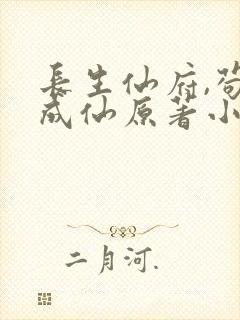 長生仙府,茍
成仙原著小
二月河.